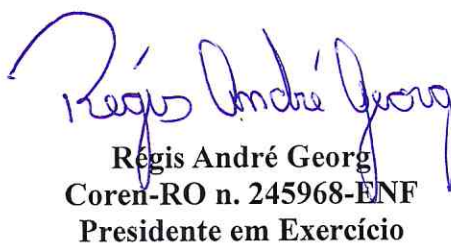 Régis André Georg
Régis André Georg
Coren-RO n. 245968-ENF
Presidente em Exercício